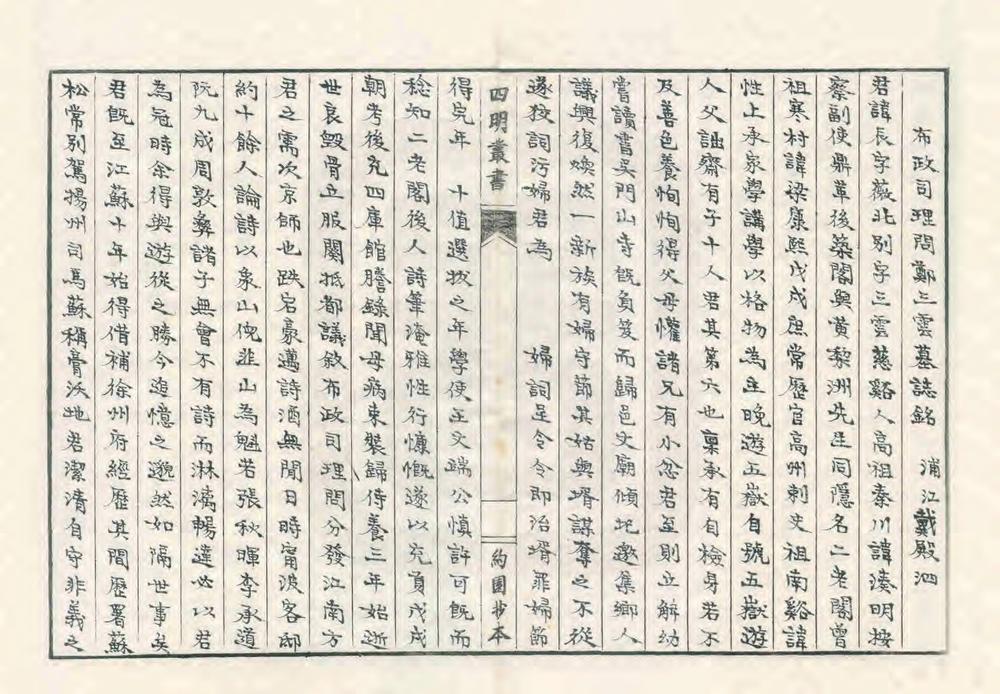 布政司理問鄭三雲墓誌銘　浦江戴殿泗
君諱辰字薇北別字三雲慈谿人高祖秦川諱溱明按
察副使鼎革後築閣與黃黎洲先生同隱名二老閣曾
祖寒村諱梁康熙戊戌庶常歷官高州刺史祖南谿諱
性上承家學講學以格物為主晚遊五嶽自號五嶽遊
人父詘齋有子十人君其第六也稟承有自檢身若不
及善色養恂恂得父母懽諸兄有小忿君至則立解幼
嘗讀書吳門山寺既負笈而歸邑文廟傾圮邀集鄉人
議興復煥然一新族有婦守節其姑與壻謀奪之不從
遂狡詞污婦君為　婦詞呈令令即治壻罪婦節
四明叢書　約園抄本
得完年　十值選拔之年學使王文端公慎許可既而
稔知二老閣後人詩筆淹雅性行慷慨遂以充貢戊戌
朝考後充四庫館謄錄聞母病束裝歸侍養三年始逝
世哀毀骨立服闋抵都議敘布政司理問分發江南方
君之需次京師也跌宕豪邁詩酒無閒日時甯波客邸
約十餘人論詩以象山倪韭山為魁若張秋暉李承道
阮九成周敦彝諸子無會不有詩而淋漓暢達必以君
為冠時余得與遊從之勝今追憶之邈然如隔世事矣
君既至江蘇十年始得借補徐州府經歷其間歷署蘇
松常別駕揚州司馬蘇稱膏沃地君潔清自守非義之